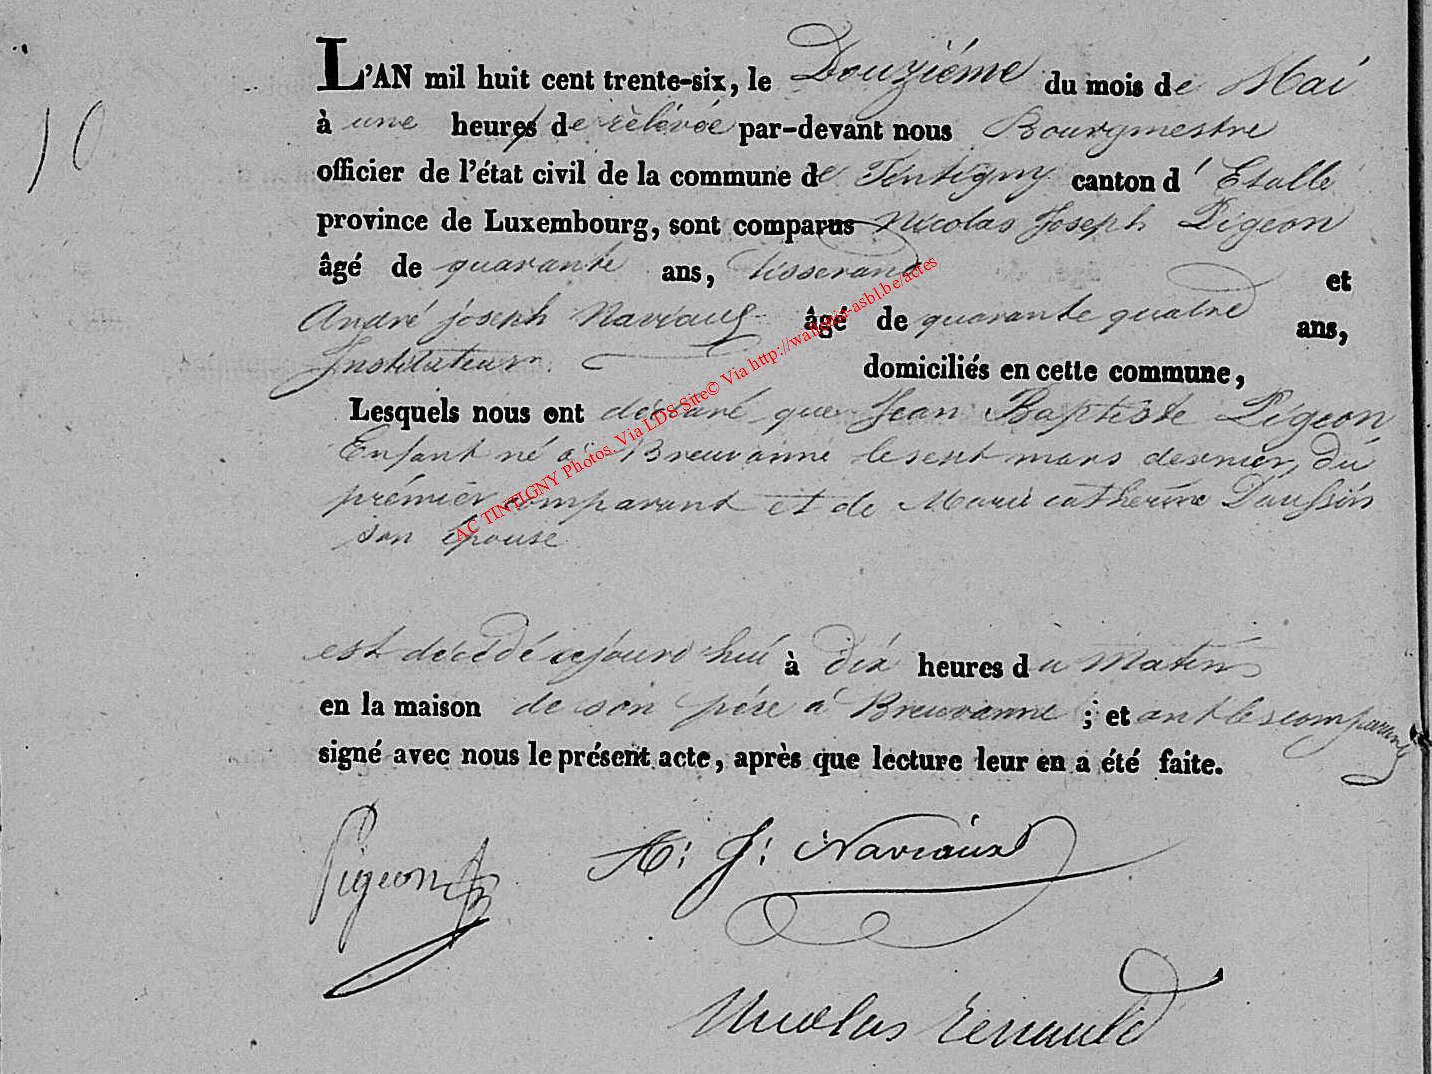 10
L'AN mil huit cent trente-six, le Douziéme du mois de Mai
à une heures de rélévée par-devant nous Bourgmestre
officier de l'état civil de la commune de Tintigny canton d'Etalle
province de Luxembourg, sont comparus Nicolas Joseph Pigeon
âgé de quarante ans, tisserand et
André joseph Naviaux âgé de quarante quatre ans,
Instituteur. domiciliés en cette commune,
Lesquels nous ont déclaré que Jean Baptiste Pigeon
Enfant né à Breuvanne le sept mars dernier, du
prémier comparant et de Marie catherine
son épouse
est décédé cejourd'hui à dix heures du Matin
en la maison de son pére à Breuvanne ; et ont les comparants
signé avec nous le présent acte, après que lecture leur en a été faite.
Pigeon A: J: Naviaux
Nicolas Renauld
AC TINTIGNY Photos. Via LDS Site© Via http://wallonia-asbl.be/actes